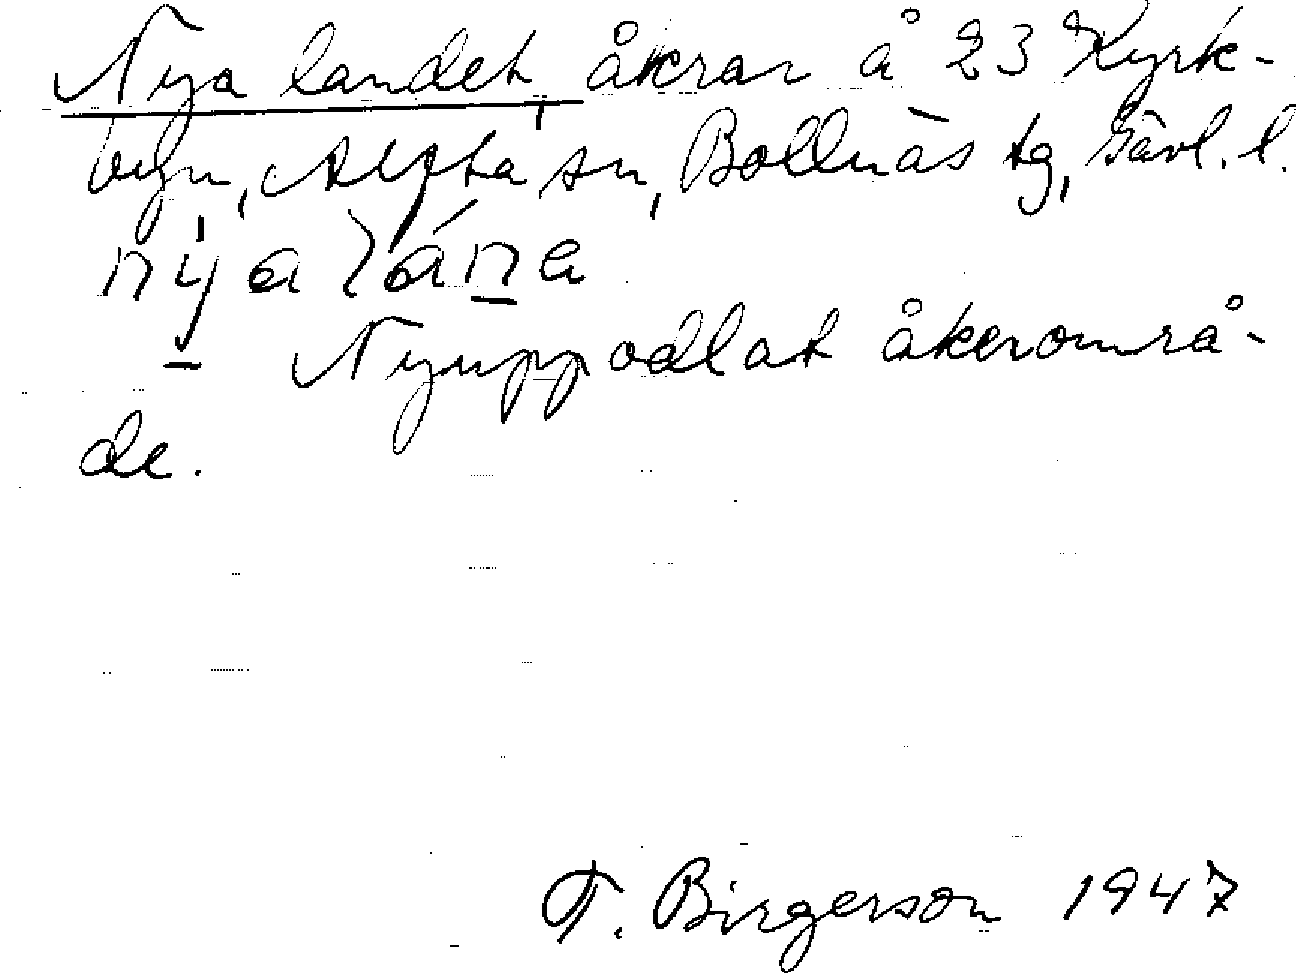 Nya landet, åkrar å 23 Kyrk-
byn, Alfta sn, Bollnäs tg, Gävl. l.
nýa lána
Nyuppodlat åkerområ-
de.
T. Birgerson 1947